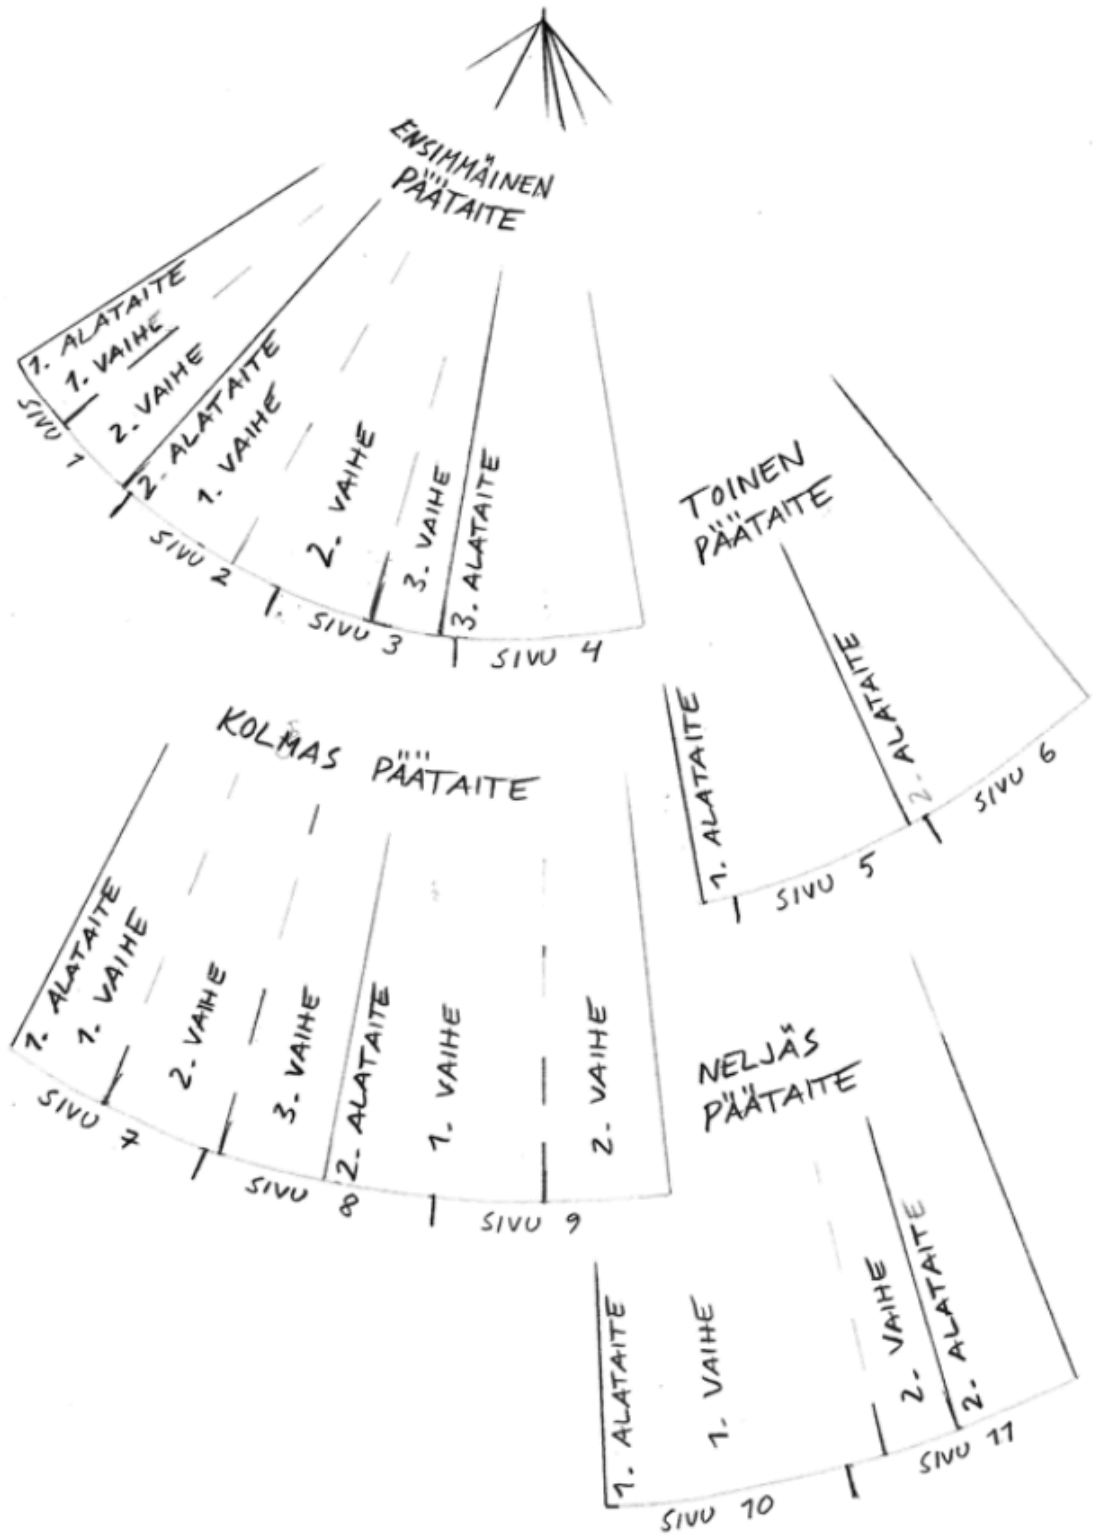 ENSIMMÄINEN
PÄÄTAITE
1. ALATAITE
1. VAIHE
2. VAIHE
2. ALATAITE
1. VAIHE
2. VAIHE
3. VAIHE
3. ALATAITE
SIVU 1
SIVU 2
SIVU 3
SIVU 4
TOINEN
PÄÄTAITE
1. ALATAITE
2. ALATAITE
SIVU 5
SIVU 6
KOLMAS PÄÄTAITE
1. ALATAITE
1. VAIHE
2. VAIHE
3. VAIHE
2. ALATAITE
1. VAIHE
2. VAIHE
SIVU 7
SIVU 8
SIVU 9
NELJÄS
PÄÄTAITE
1. ALATAITE
1. VAIHE
2. VAIHE
2. ALATAITE
SIVU 10
SIVU 11